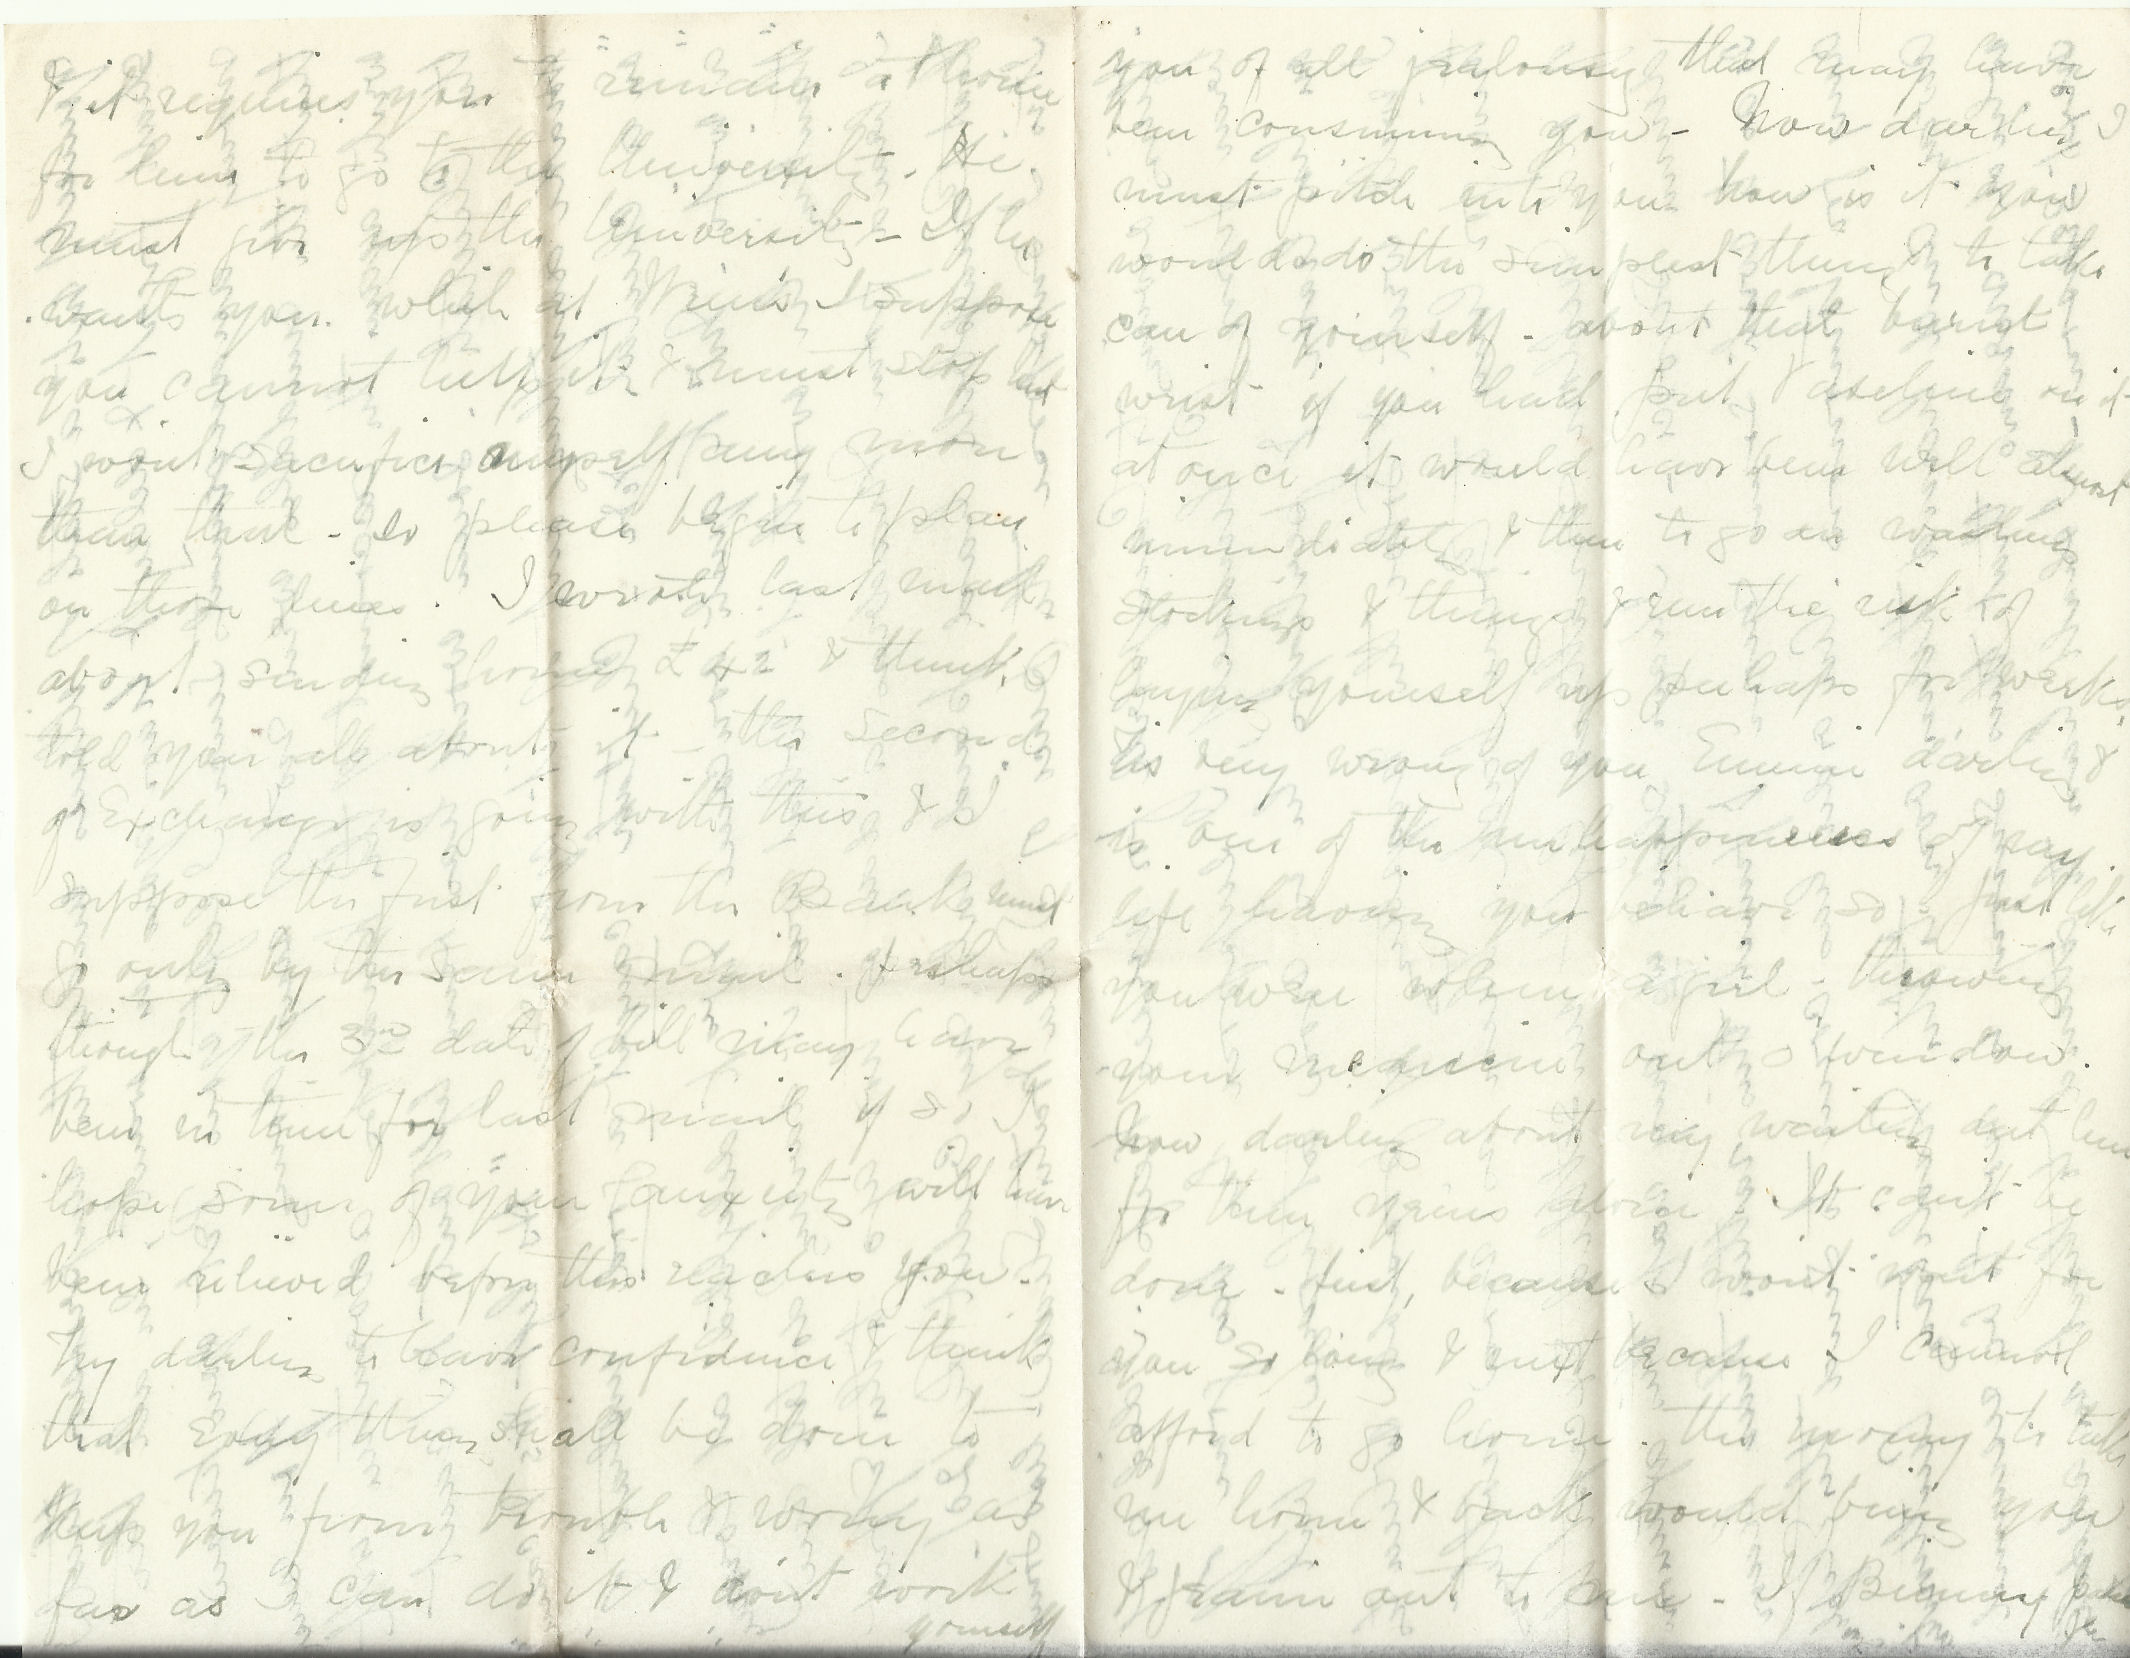 & it requires you to remain at home
for him to go to the University. He
must give up the University - If he
wants you while at I suppose
you cannot help it & must stop but
I wont sacrifice myself any more
than that - so please begin to plan
on those lines. I wrote last mail
about sending home £42 & think I
told you all about it - the second
of Exchange is going with this & I
suppose the first from the Bank must
go only by the same mail. Perhaps
though the date of bill may have
been in time for last mail if so I
hope some of your anxiety will have
been relieved before this reaches you.
Try darling to have confidence & think
that every thing shall be done to
keep you from trouble & worry as
far as I can do it & dont work
yourself
you of all jealousy that may have
been consuming you - Now darling I
must pitch into you how is it you
wont do the simplest thing to take
care of yourself - about that burnt
wrist if you had put Vaseline on it
at once it would have been well almost
immediately & then to go on washing
stockings & things & run the risk of
laying yourself up perhaps for weeks,
tis very wrong of you Emmie darling &
is one of the unhappinesses of my
life having you behave so, just like
you were when a girl - throwing
your medicine out o window.
Now darling about my waiting out here
for years alone. It cant be
done - first, because I wont wait for
you so long & next because I cannot
afford to go home. the money to take
me home & back would bring you
& out to me - If